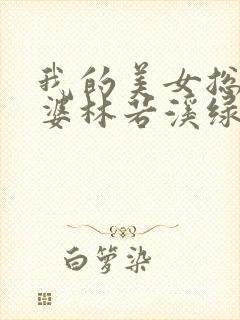 我的美女总
婆林若溪绿
白箩染